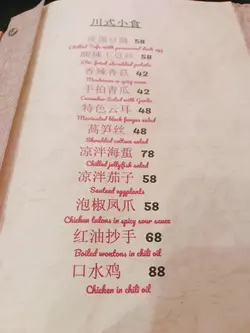 川式小食
皮蛋豆腐 58
Chilled Tofu with preserved duck egg
酸辣土豆丝 58
Stir fried shredded potato
香辣香菇 42
Mushroom in spicy sauce
手拍青瓜 42
Cucumber Salad with Garlic
特色云耳 48
Marinated black fungus salad
莴笋丝 48
Shredded cotton salad
凉拌海蜇 78
Chilled jellyfish salad
凉拌茄子 58
Sauteed eggplants
泡椒凤爪 58
Chicken talons in spicy sour sauce
红油抄手 68
Boiled wontons in chili oil
口水鸡 88
Chicken in chili oil